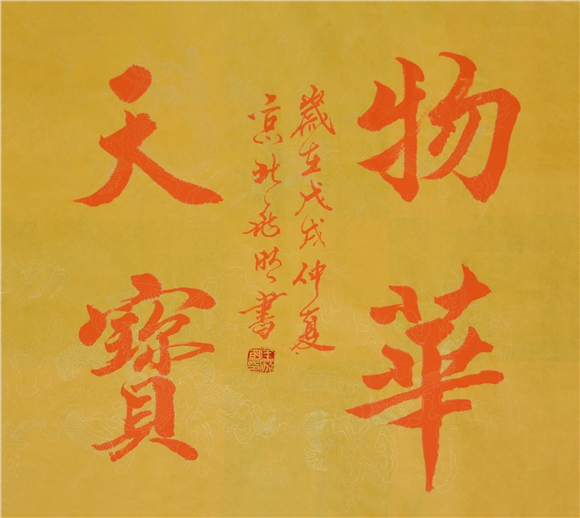 物華
歲在戊戌仲夏
京北明書
天寶